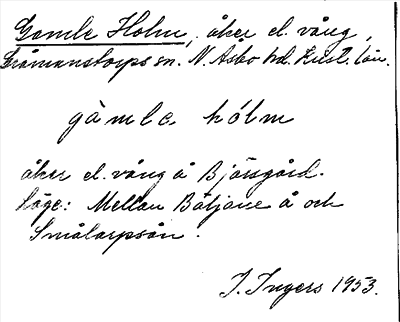 Gamle Holm, åker el. vång,
Gråmanstorps sn. N. Åsbo hd. Krist. län.
gàmlə hólm
åker el. vång å Bjärsgård.
Läge: Mellan Bäljane å och
Smålarpsån.
I. Ingers 1953.